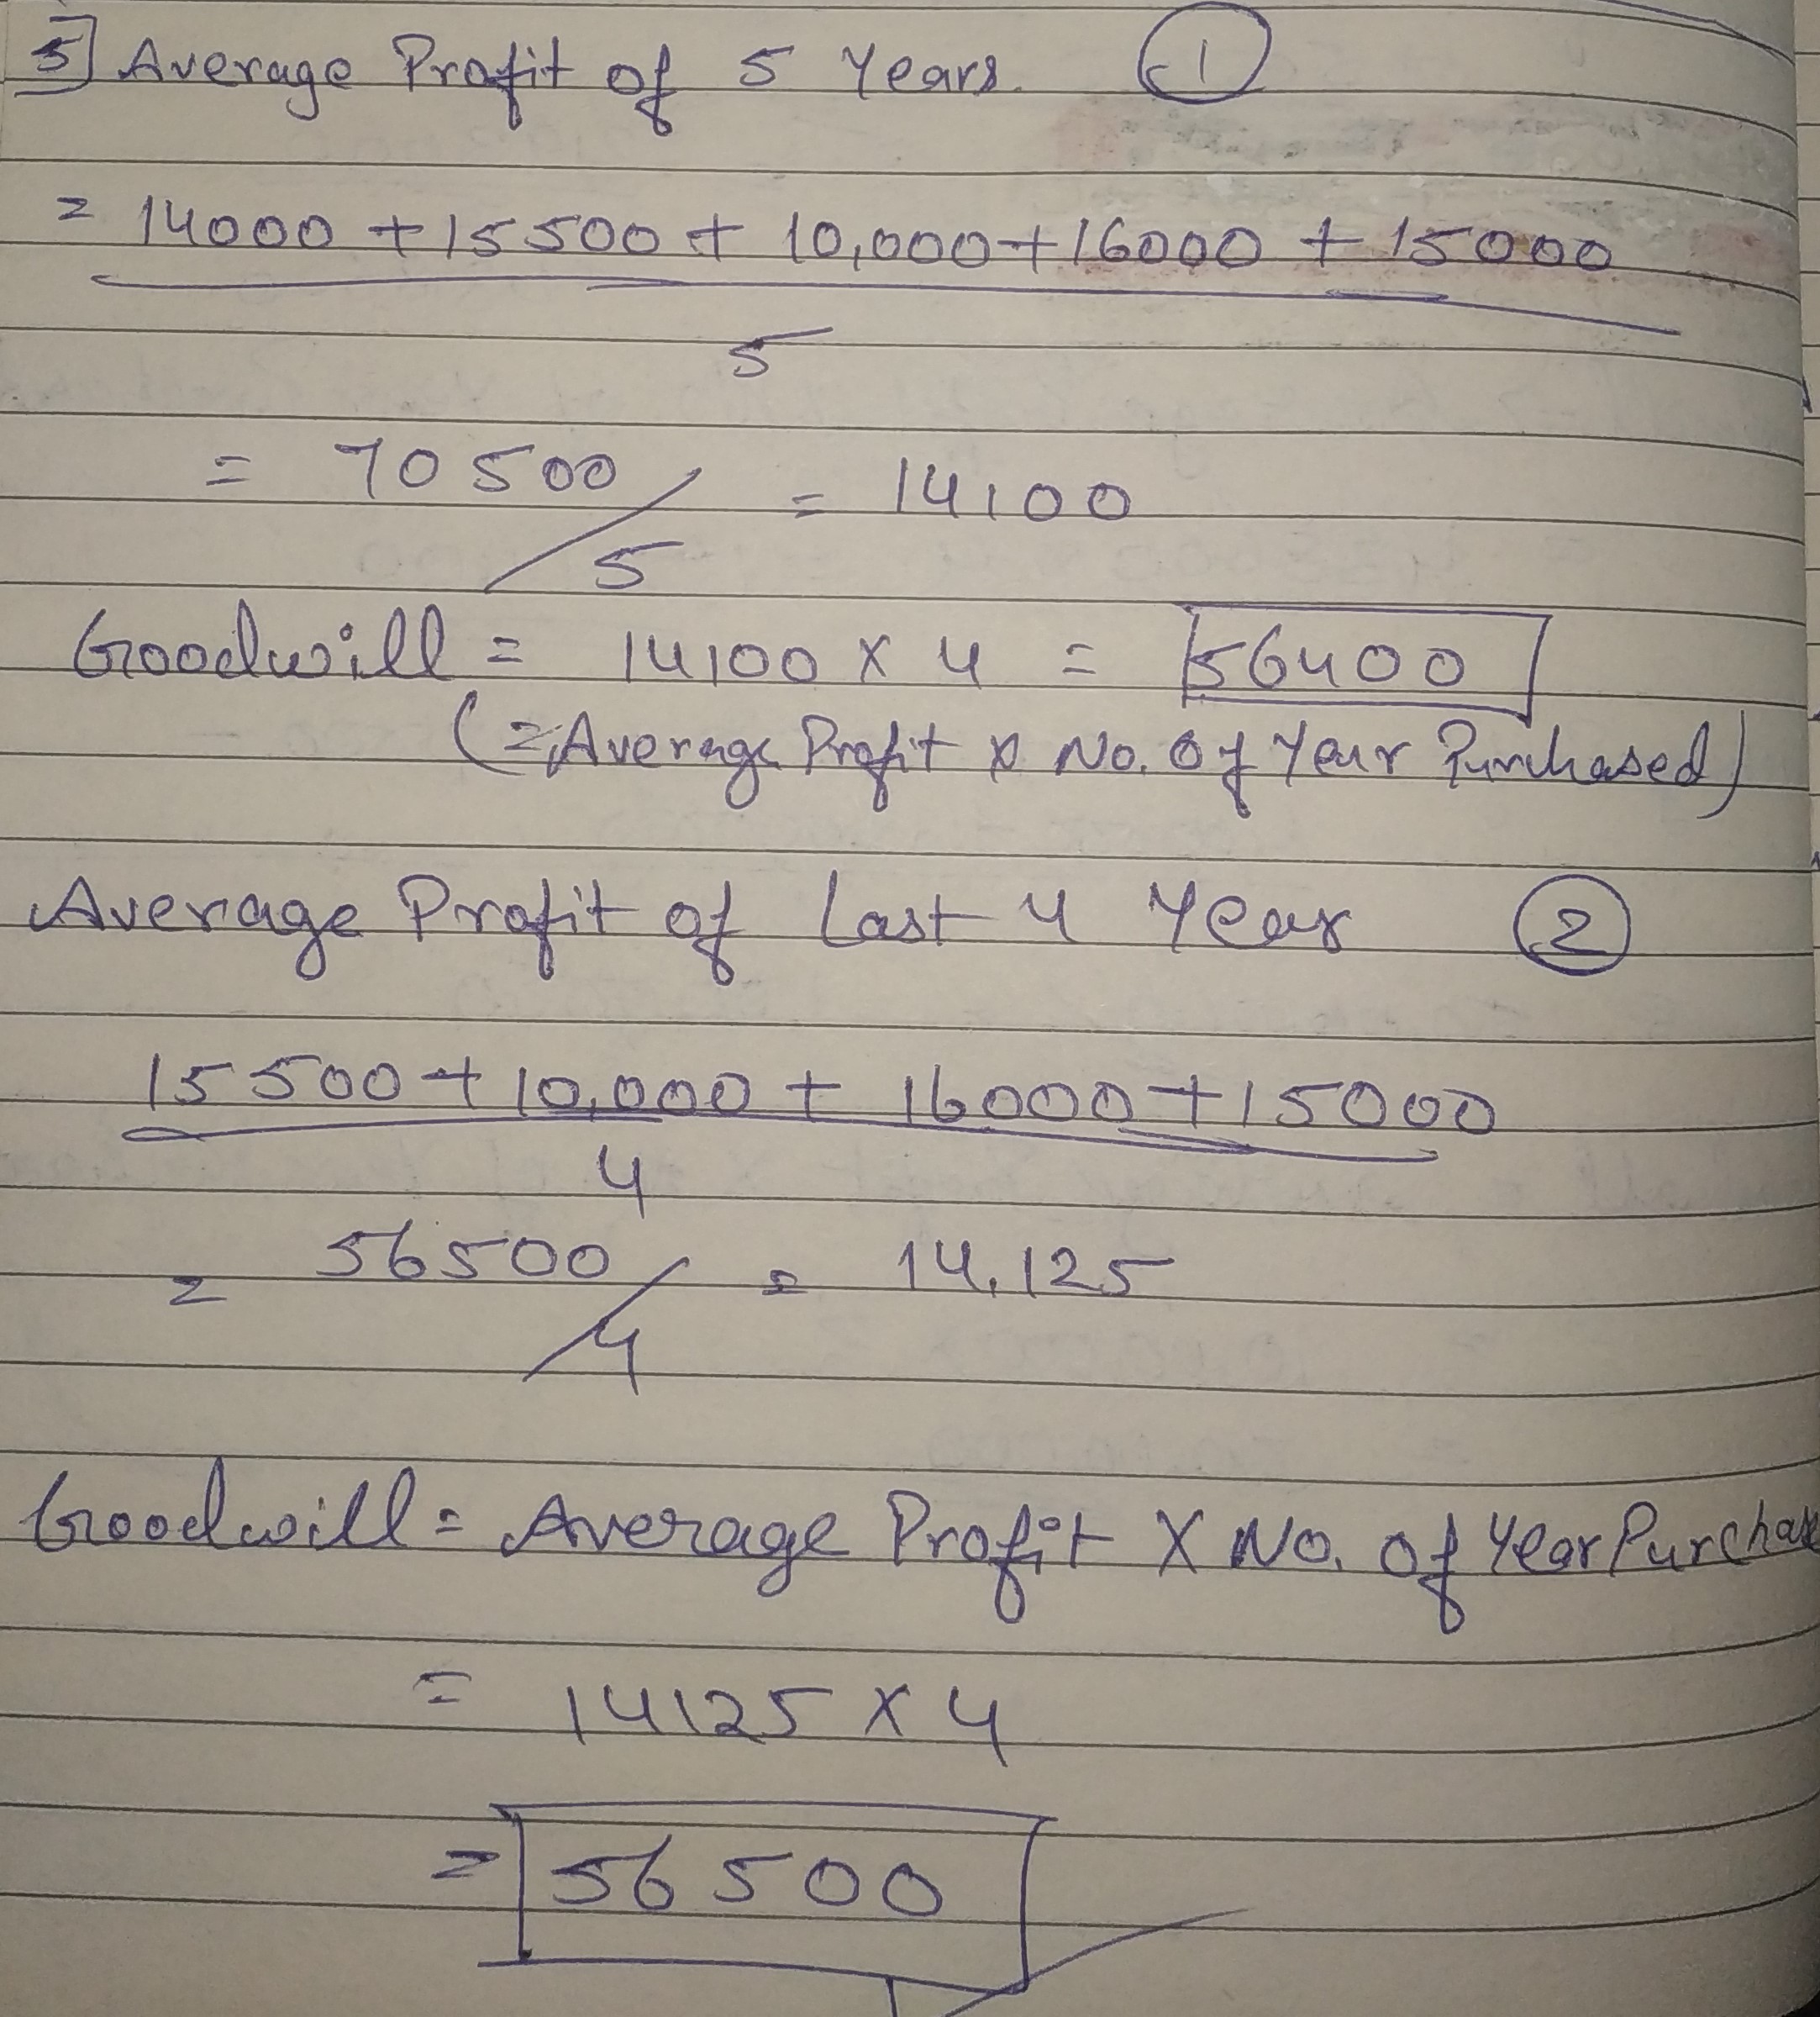 5] Average Profit of 5 Years. 1
= 14000 + 15500 + 10,000 + 16000 + 15000
5
= 70500/5 = 14100
Goodwill = 14100 x 4 = 56400
(= Average Profit x No. of Year Purchased)
Average Profit of Last 4 Year 2
15500 + 10,000 + 16000 + 15000
4
= 56500/4 = 14,125
Goodwill = Average Profit X No. of Year Purchase
= 14125 x 4
= 56500